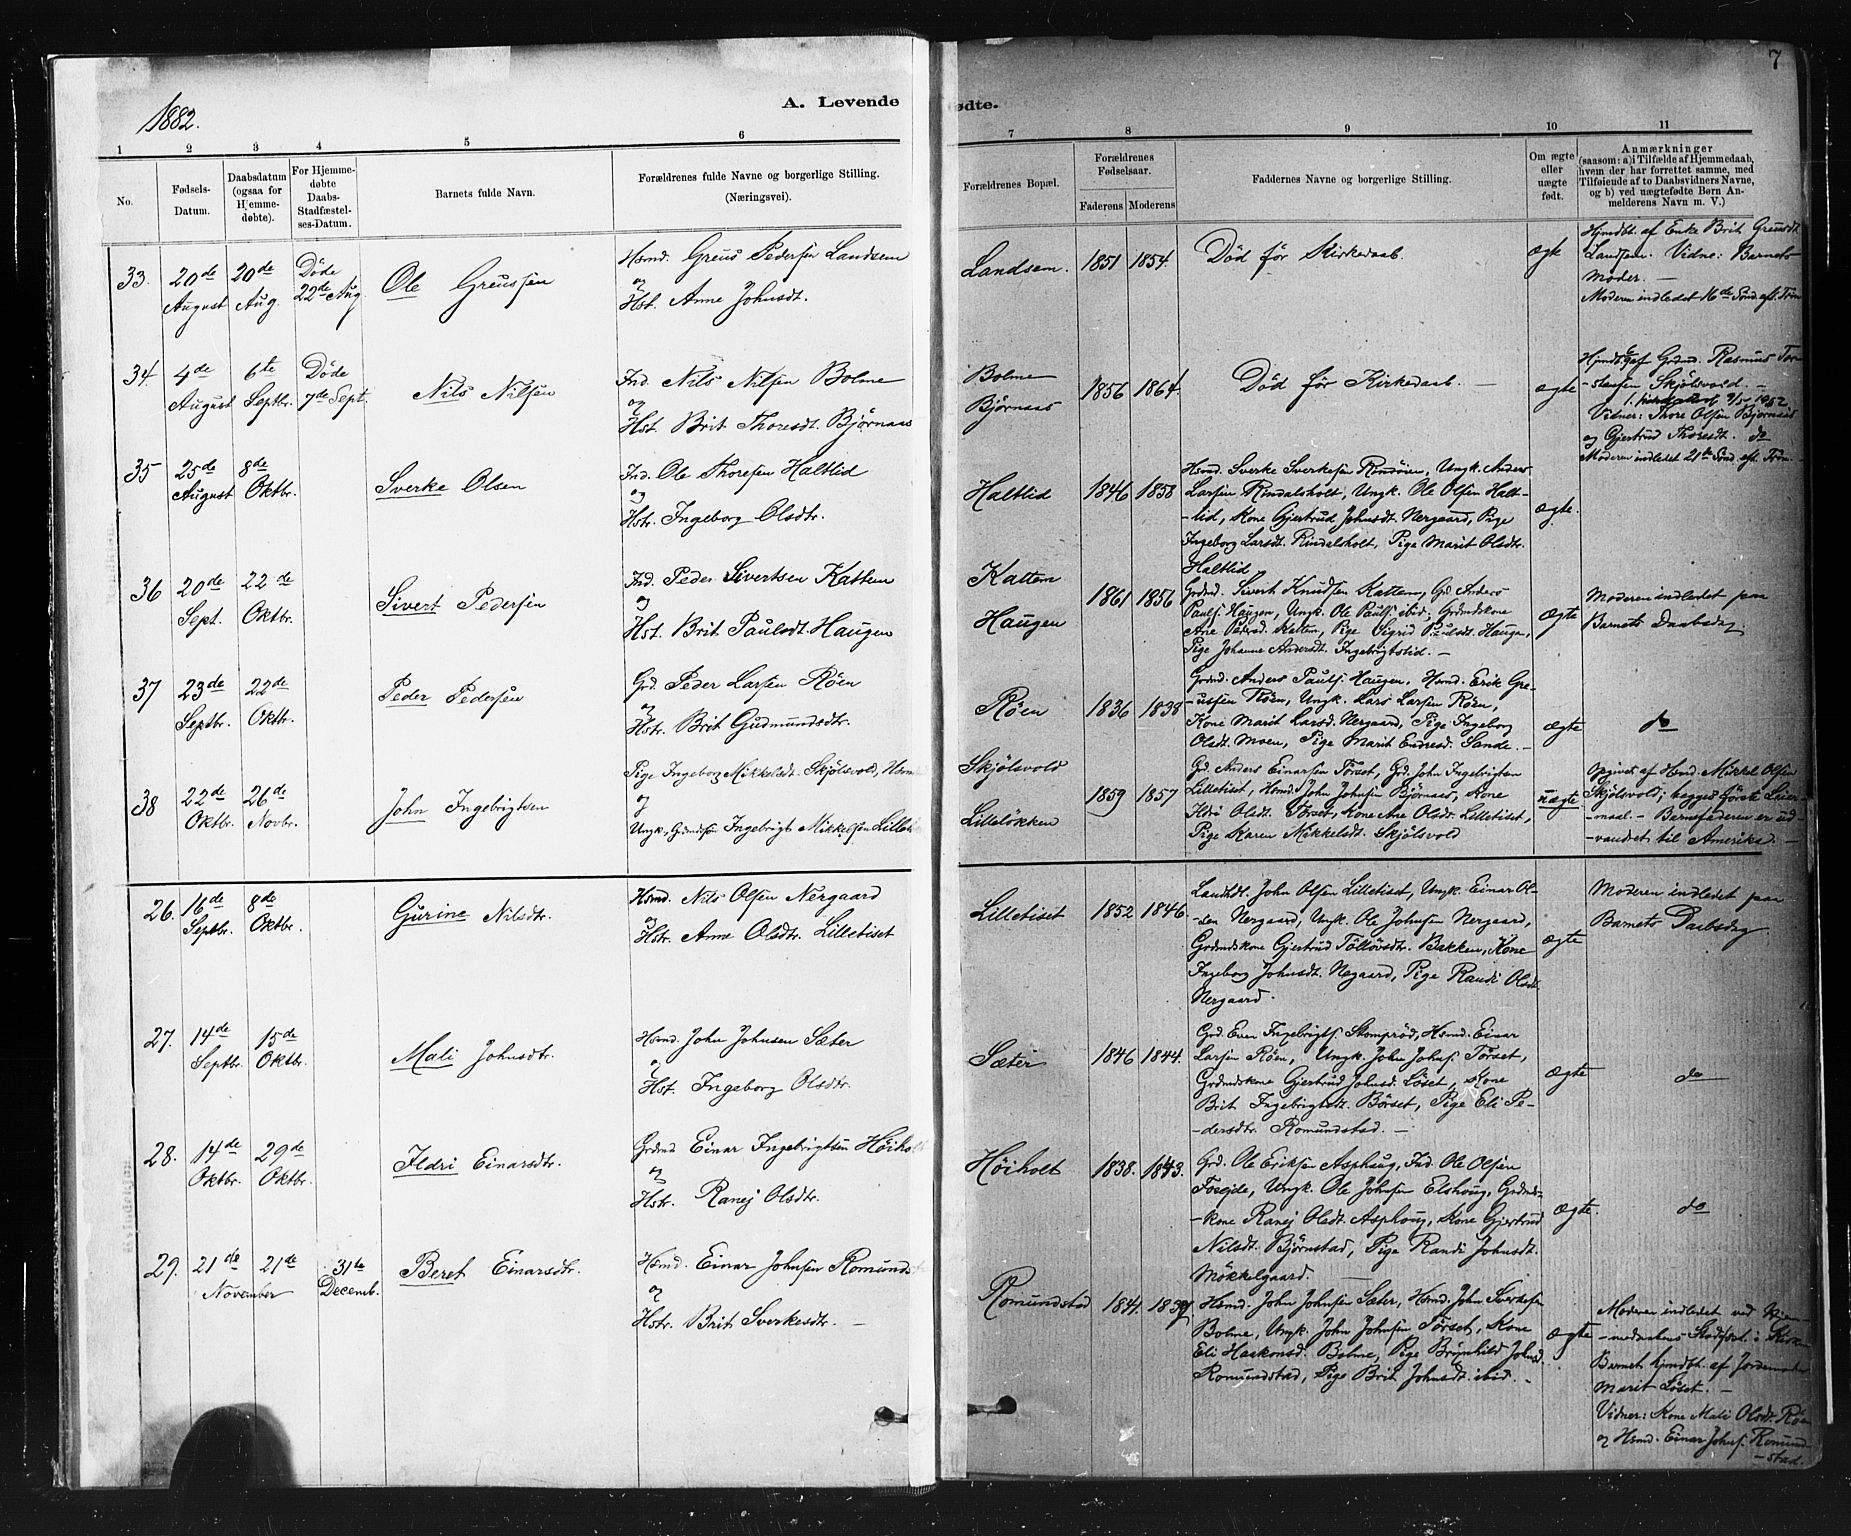 7
1882.
A. Levende
ødte.
1 2 3 4 5 6 7 8 9 10 11
No.
Fødsels-
Datum.
Daabsdatum
(ogsaa for
Hjemme-
døbte).
For Hjemme-
døbte
Daabs-
Stadfæstel-
ses-Datum.
Barnets fulde Navn.
Forældrenes fulde Navne og borgerlige Stilling.
(Næringsvei).
Forældrenes Bopæl.
Forældrenes
Fødselsaar.
Faderens Moderens
Faddernes Navne og borgerlige Stilling.
Om ægte
eller
uægte
født.
Anmærkninger
(saasom: a) i Tilfælde af Hjemmedaab,
hvem der har forrettet samme, med
Tilføiende af to Daabsvidners Navne,
og b) ved uægtefødte Børn An-
melderens Navn m. V.)
33. 20de August
20de Aug.
Døde
22de Aug.
Ole Greussen
Hsmd. Greus Pedersen Landsem
og
Hst. Anne Johnsdt.
Landsem. 1851 1854.
Død før Kirkedaab.
ægte
Hjmdbt. af Enke Brit Greusdt.
Landsem. Vidne: Barnets
Moder. —
Moderen indledet 16de Sønd. eft. Trin.
34 4de August
6te Septbr.
Døde
7de Sept.
Nils Nilsen
Ind. Nils Nilsen Bolme
og
Hst. Brit Thoresdt Bjørnaas
Bolme
Bjørnaas
1856 1864.
Død før Kirkedaab. —
ægte
Hjmdbt. af Grdmd. Rasmus Tor-
-stensen Skjølsvold. —
Vidner: Thore Olsen Bjørnaas
og Gjertrud Thoresdt. do
Moderen indledet 21de Sønd. eft. Trin. —
35 25de August
8de Oktbr.
Sverke Olsen
Ind. Ole Thoresen Haltlid
og
Hstr. Ingeborg Olsdtr.
Haltlid 1846 1858
Hsmd. Sverke Sverkesen Romøien, Ungk. Anders
Larsen Rindalsholt, Ungk. Ole Olsen Halt-
-lid, Kone Gjertrud Johnsdt. Nergaard, Pige
Ingeborg Larsdt. Rindalsholt, Pige Marit Olsdtr.
Haltlid
ægte.
36 20de Sept.
22de Oktbr.
Sivert Pedersen
Ind. Peder Sivertsen Kattem
og
Hst. Brit Paulsdt. Haugen
Kattem
Haugen
1861 1856
Grdmd. Sivert Knudsen Kattem, Grd. Anders
Pauls. Haugen, Ungk. Ole Pauls. ibid, Grdmdskone
Ane Pedersd. Kattem, Pige Sigrid Paulsdt. Haugen,
Pige Johanne Andersdt. Ingebrigtslid. —
ægte
Moderen indledet paa
Barnets Daabsdag.
37 23de Septbr.
22de Oktbr.
Peder Pedersen
Grd. Peder Larsen Røen
og
Hstr. Brit Gudmundsdtr.
Røen 1836 1838
Grdmd. Anders Pauls. Haugen, Hsmd. Erik Gre-
-ussen Røen, Ungk. Lars Larsen Røen,
Kone Marit Larsd. Nergaard, Pige Ingeborg
Olsdt. Moen, Pige Marit Endresd. Sande. —
ægte
do
38 22de Oktbr.
26de Novbr.
John Ingebrigtsen
Pige Ingeborg Mikkelsdt. Skjølsvold, Hsmd
og
Ungk., Grdmdssøn Ingebrigt Mikkelsen Lilleløk
Skjølsvold
Lilleløkken
1859 1857
Grd. Anders Einarsen Tørset, Grd. John Ingebrigtsen
Lilletiset, Hsmd. John Johnsen Bjørnaas, Kone
Ildri Olsdt. Tørset, Kone Ane Olsdt. Lilletiset,
Pige Karen Mikkelsdt. Skjølsvold
uægte
Opgivet af Hsmd. Mikkel Olsen
Skjølsvold; begges første Leier-
-maal. — Barnefaderen er ud-
-vandret til Amerika. —
26. 16de Septbr.
8de Oktbr.
Gurine Nilsdtr.
Hsmd. Nils Olsen Nergaard
og
Hstr. Anne Olsdtr. Lilletiset
Lilletiset 1852 1846.
Landhdl. John Olsen Lilletiset, Ungk. Einar Ol-
-sen Nergaard, Ungk. Ole Johnsen Nergaard,
Grdmdskone Gjertrud Tølløvsdtr. Bakken, Kone
Ingeborg Johnsdt. Nergaard, Pige Randi Olsdt.
Nergaard.
ægte
Moderen indledet paa
Barnets Daabsdag
27. 14de Septbr.
15de Oktbr.
Mali Johnsdtr.
Hsmd. John Johnsen Sæter
og
Hst. Ingeborg Olsdtr.
Sæter 1846 1844.
Grd. Even Ingebrigts. Stomprød, Hsmd. Einar
Larsen Røen, Ungk. John Johns. Tørset,
Grdmdskone Gjertrud Johnsd. Løset, Kone
Brit Ingebrigtsdt. Børset, Pige Eli Pe-
-dersdtr. Romundstad. —
ægte
do
28. 14de Oktbr.
29de Oktbr.
Ildri Einarsdtr.
Grdmd Einar Ingebrigtsen Høiholt
og
Hstr. Ranej Olsdtr.
Høiholt 1838. 1843.
Grd. Ole Eriksen Asphaug, Ind. Ole Olsen
Fosgjele, Ungk. Ole Johnsen Elshoug, Grdmds-
-kone Ranej Olsdt. Asphoug, Kone Gjertrud
Nilsdt. Bjørnstad, Pige Randi Johnsdt.
Møkkelgaard. —
ægte.
do
29. 21de November
21de
31te
Decemb.
Beret Einarsdtr.
Hsmd. Einar Johnsen Romundst
og
Hstr. Brit Sverkesdtr. —
Romundstad 1841. 1839
Hsmd. John Johnsen Sæter, Hsmd. John Sverkesen
Bolme, Ungk. John Johnsen Tørset, Kone
Eli Haakonsd. Bolme, Pige Brynhild Johnsd.
Romundstad, Pige Brit Johnsdt. ibid. —
ægte
Moderen indledet ved Hjem-
-medaabens Stadfæst. i Kirken
Barnet hjmdbt. af Jordemoder
Marit Løset. —
Vidner: Kone Mali Olsdt. Røen
og Hsmd. Einar Johns. Romund-
-stad.